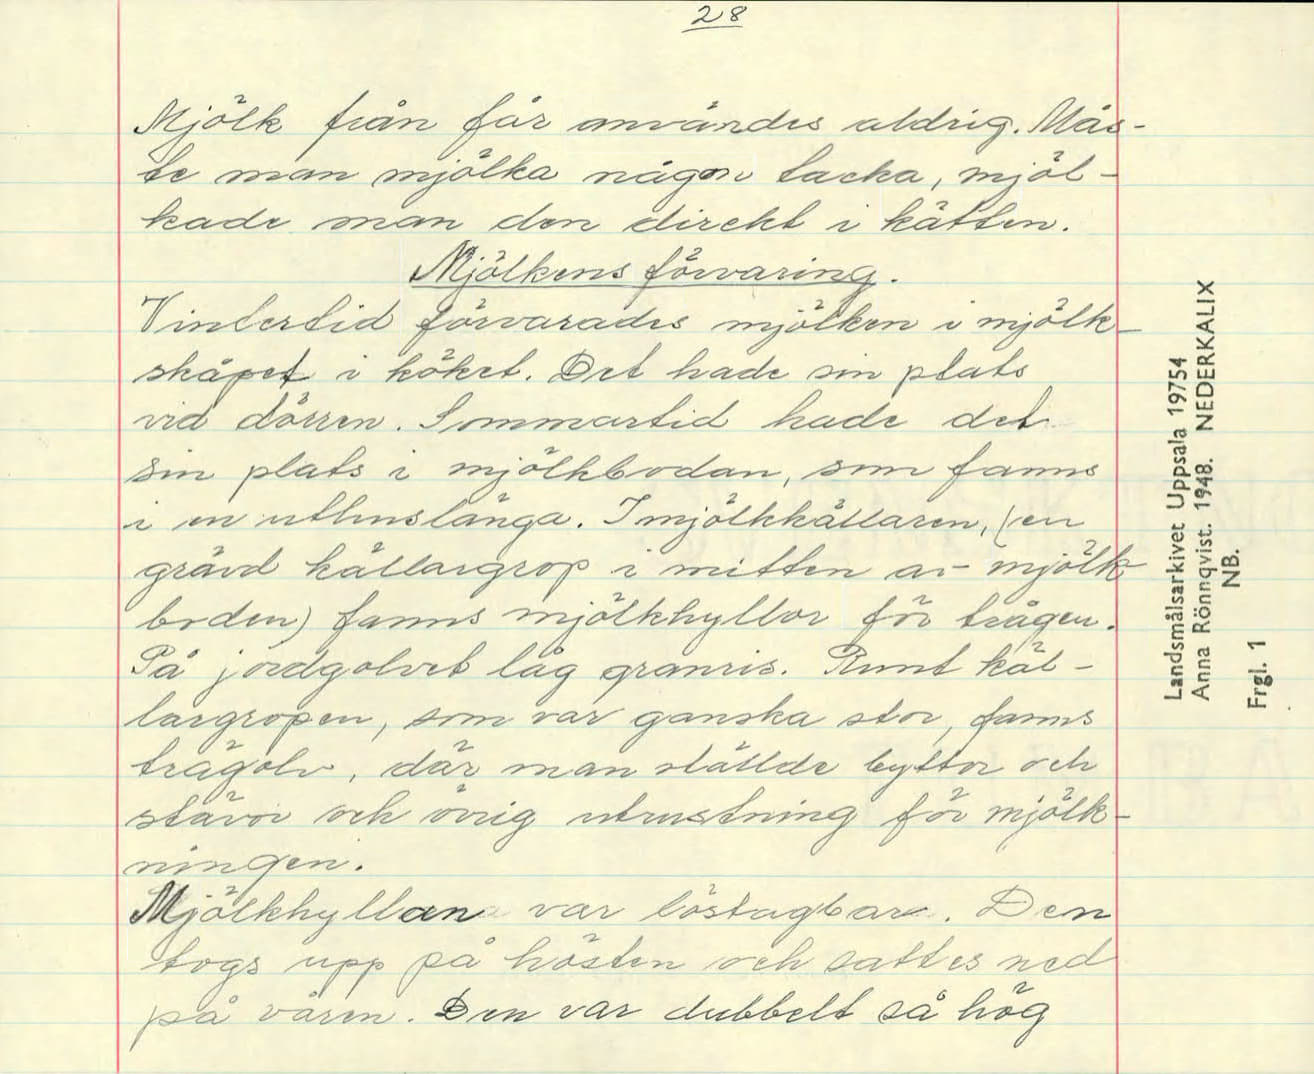 28
Mjölk från får användes aldrig. Mås-
te man mjölka någon tacka, mjöl-
kade man den direkt i kätten.
Mjölkens förvaring.
Vintertid förvarades mjölken i mjölk-
skåpet i köket. Det hade sin plats
vid dörren. Sommartid hade det
sin plats i mjölkbodan, som fanns
i en uthuslänga. I mjölkkällaren, (en
grävd källargrop i mitten av mjölk
boden) fanns mjölkhyllor för trågen.
På jordgolvet låg granris. Runt käl-
largropen, som var ganska stor, fanns
trägolv, där man ställde byttor och
stävor och övrig utrustning för mjölk-
ningen.
Mjölkhyllan var löstagbar. Den
togs upp på hösten och sattes ned
på våren. Den var dubbelt så hög
Landsmålsarkivet Uppsala 19754
Anna Rönnqvist. 1948. NEDERKALIX
NB.
Frgl. 1